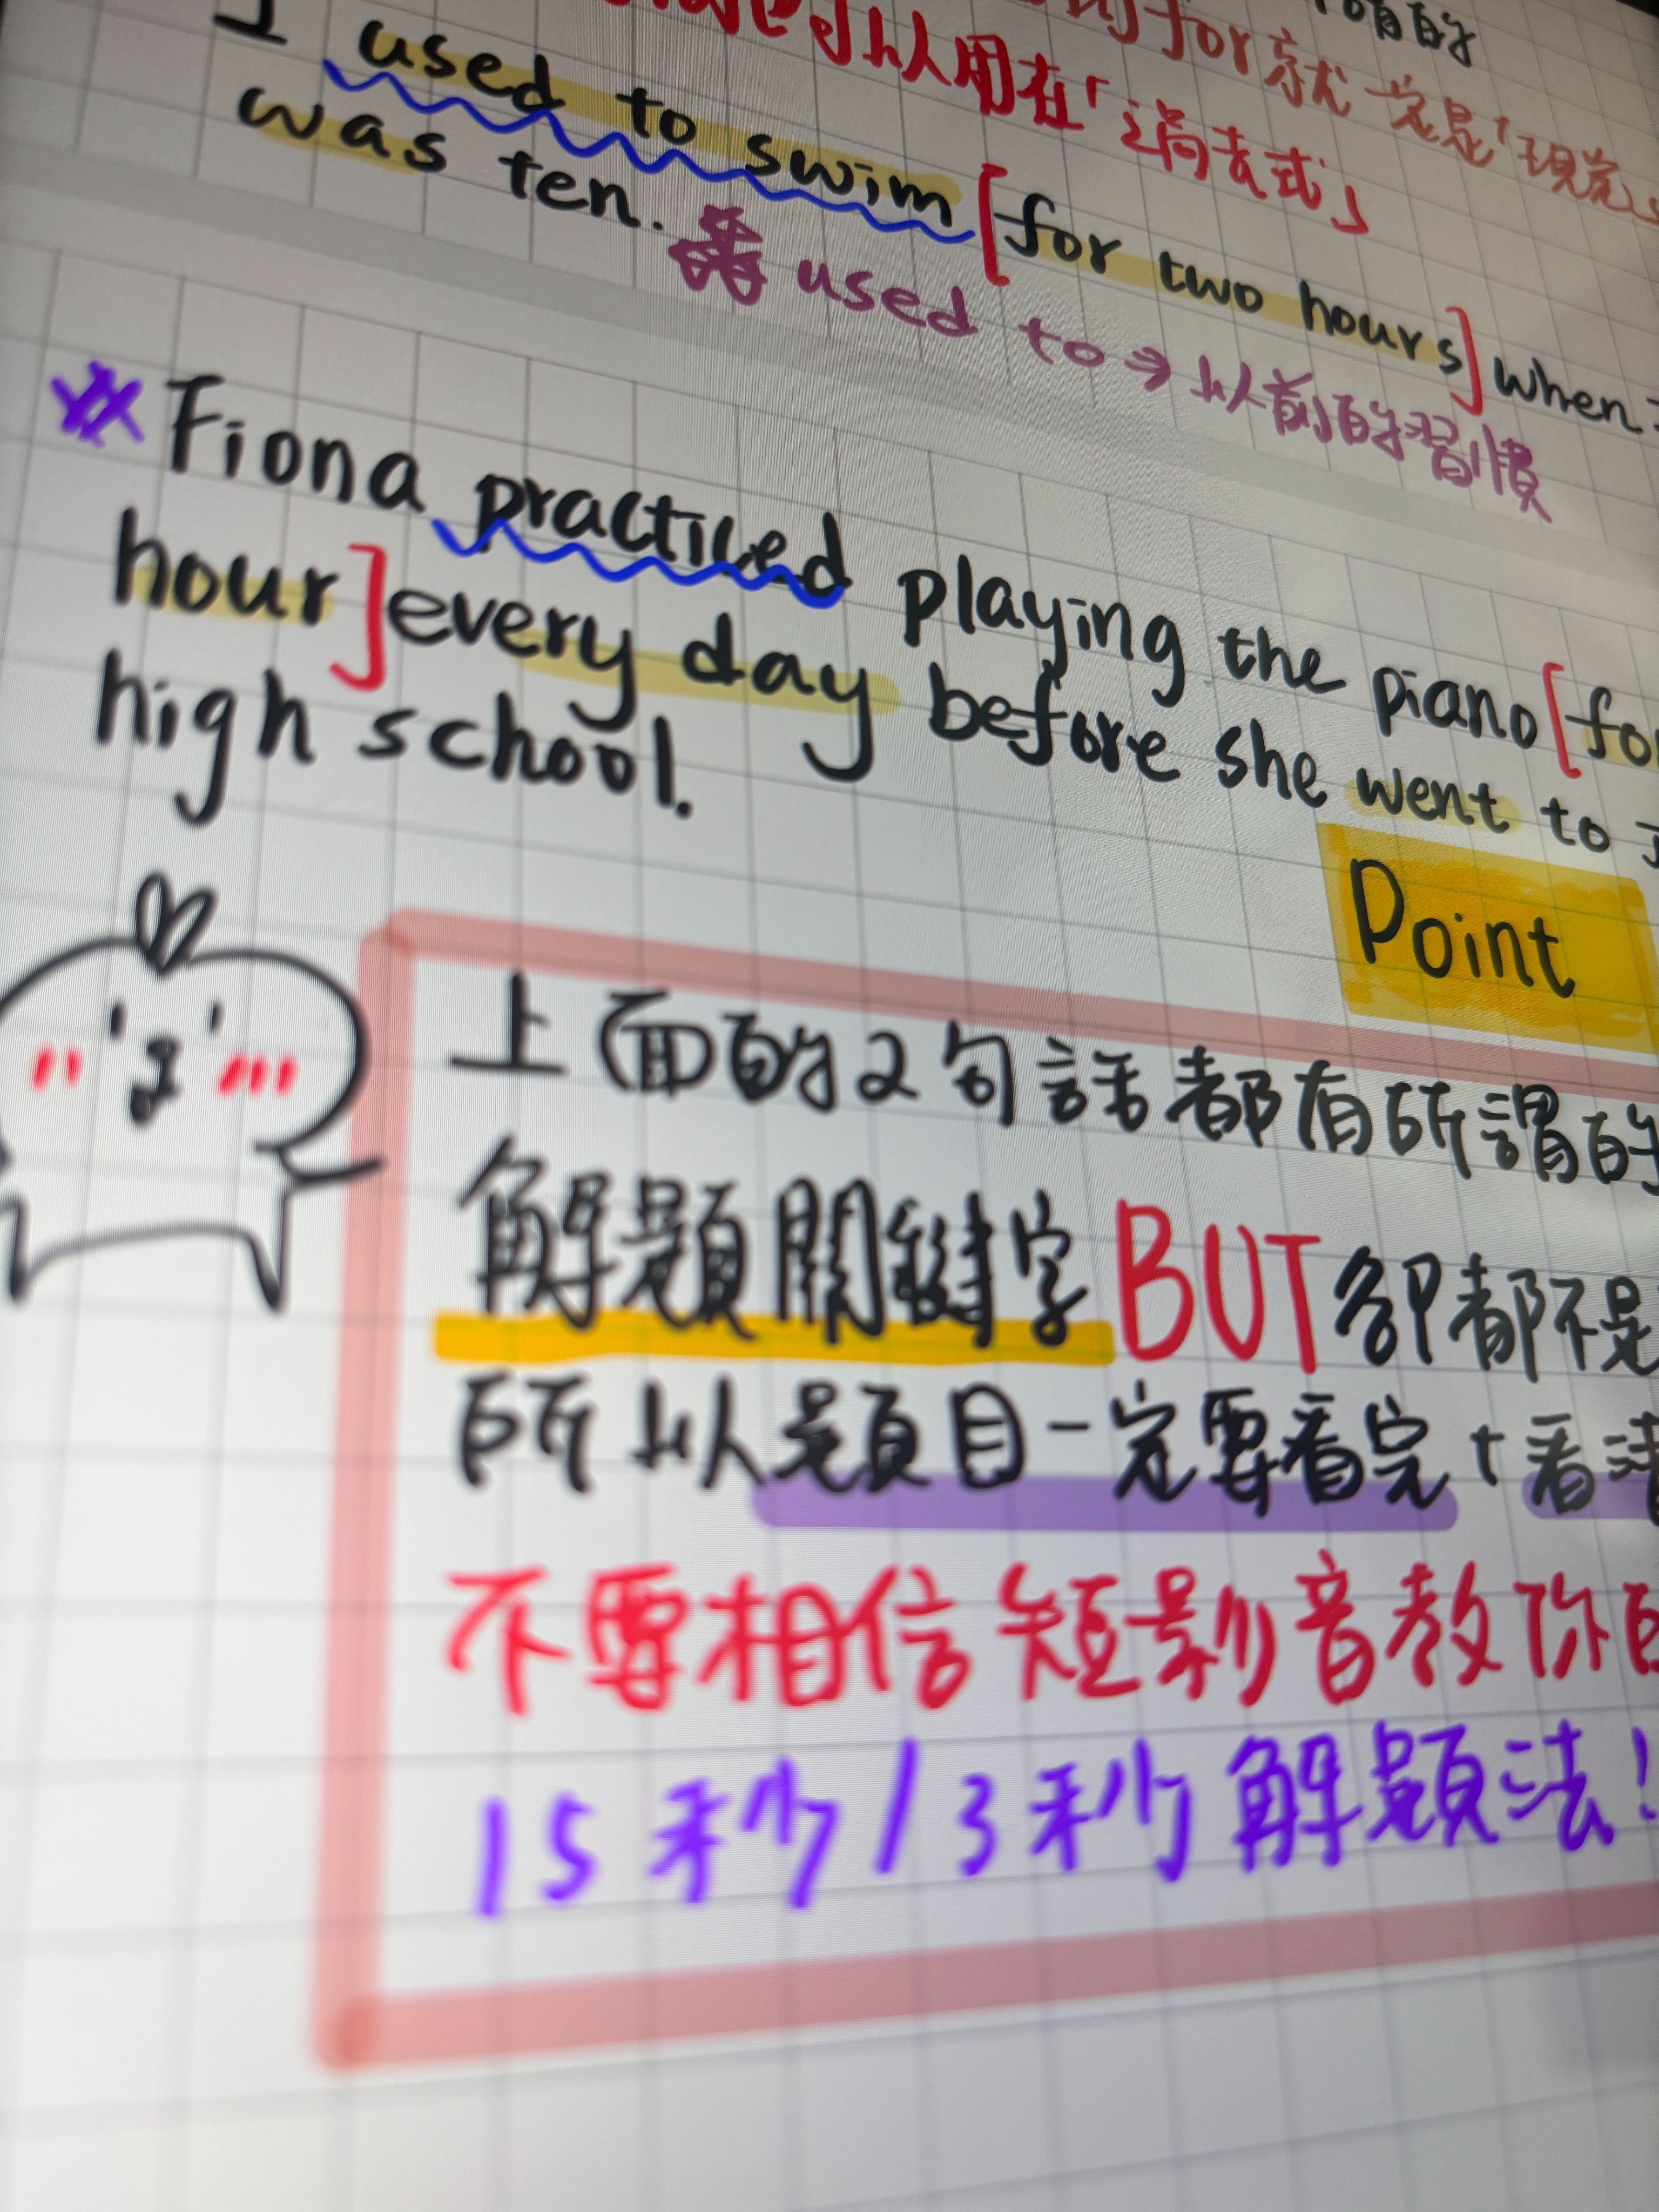 for就一定是「現完」
可以用在「過去式」
I used to swim [for two hours] when I
was ten.
used to → 以前的習慣
Fiona practiced playing the piano [fo
hour] every day before she went to j
high school.
Point
上面的2句話都有所謂的
解題關鍵字 BUT 卻都不是
所以題目一定要看完+看清
不要相信短影音教你的
15秒/3秒解題法!